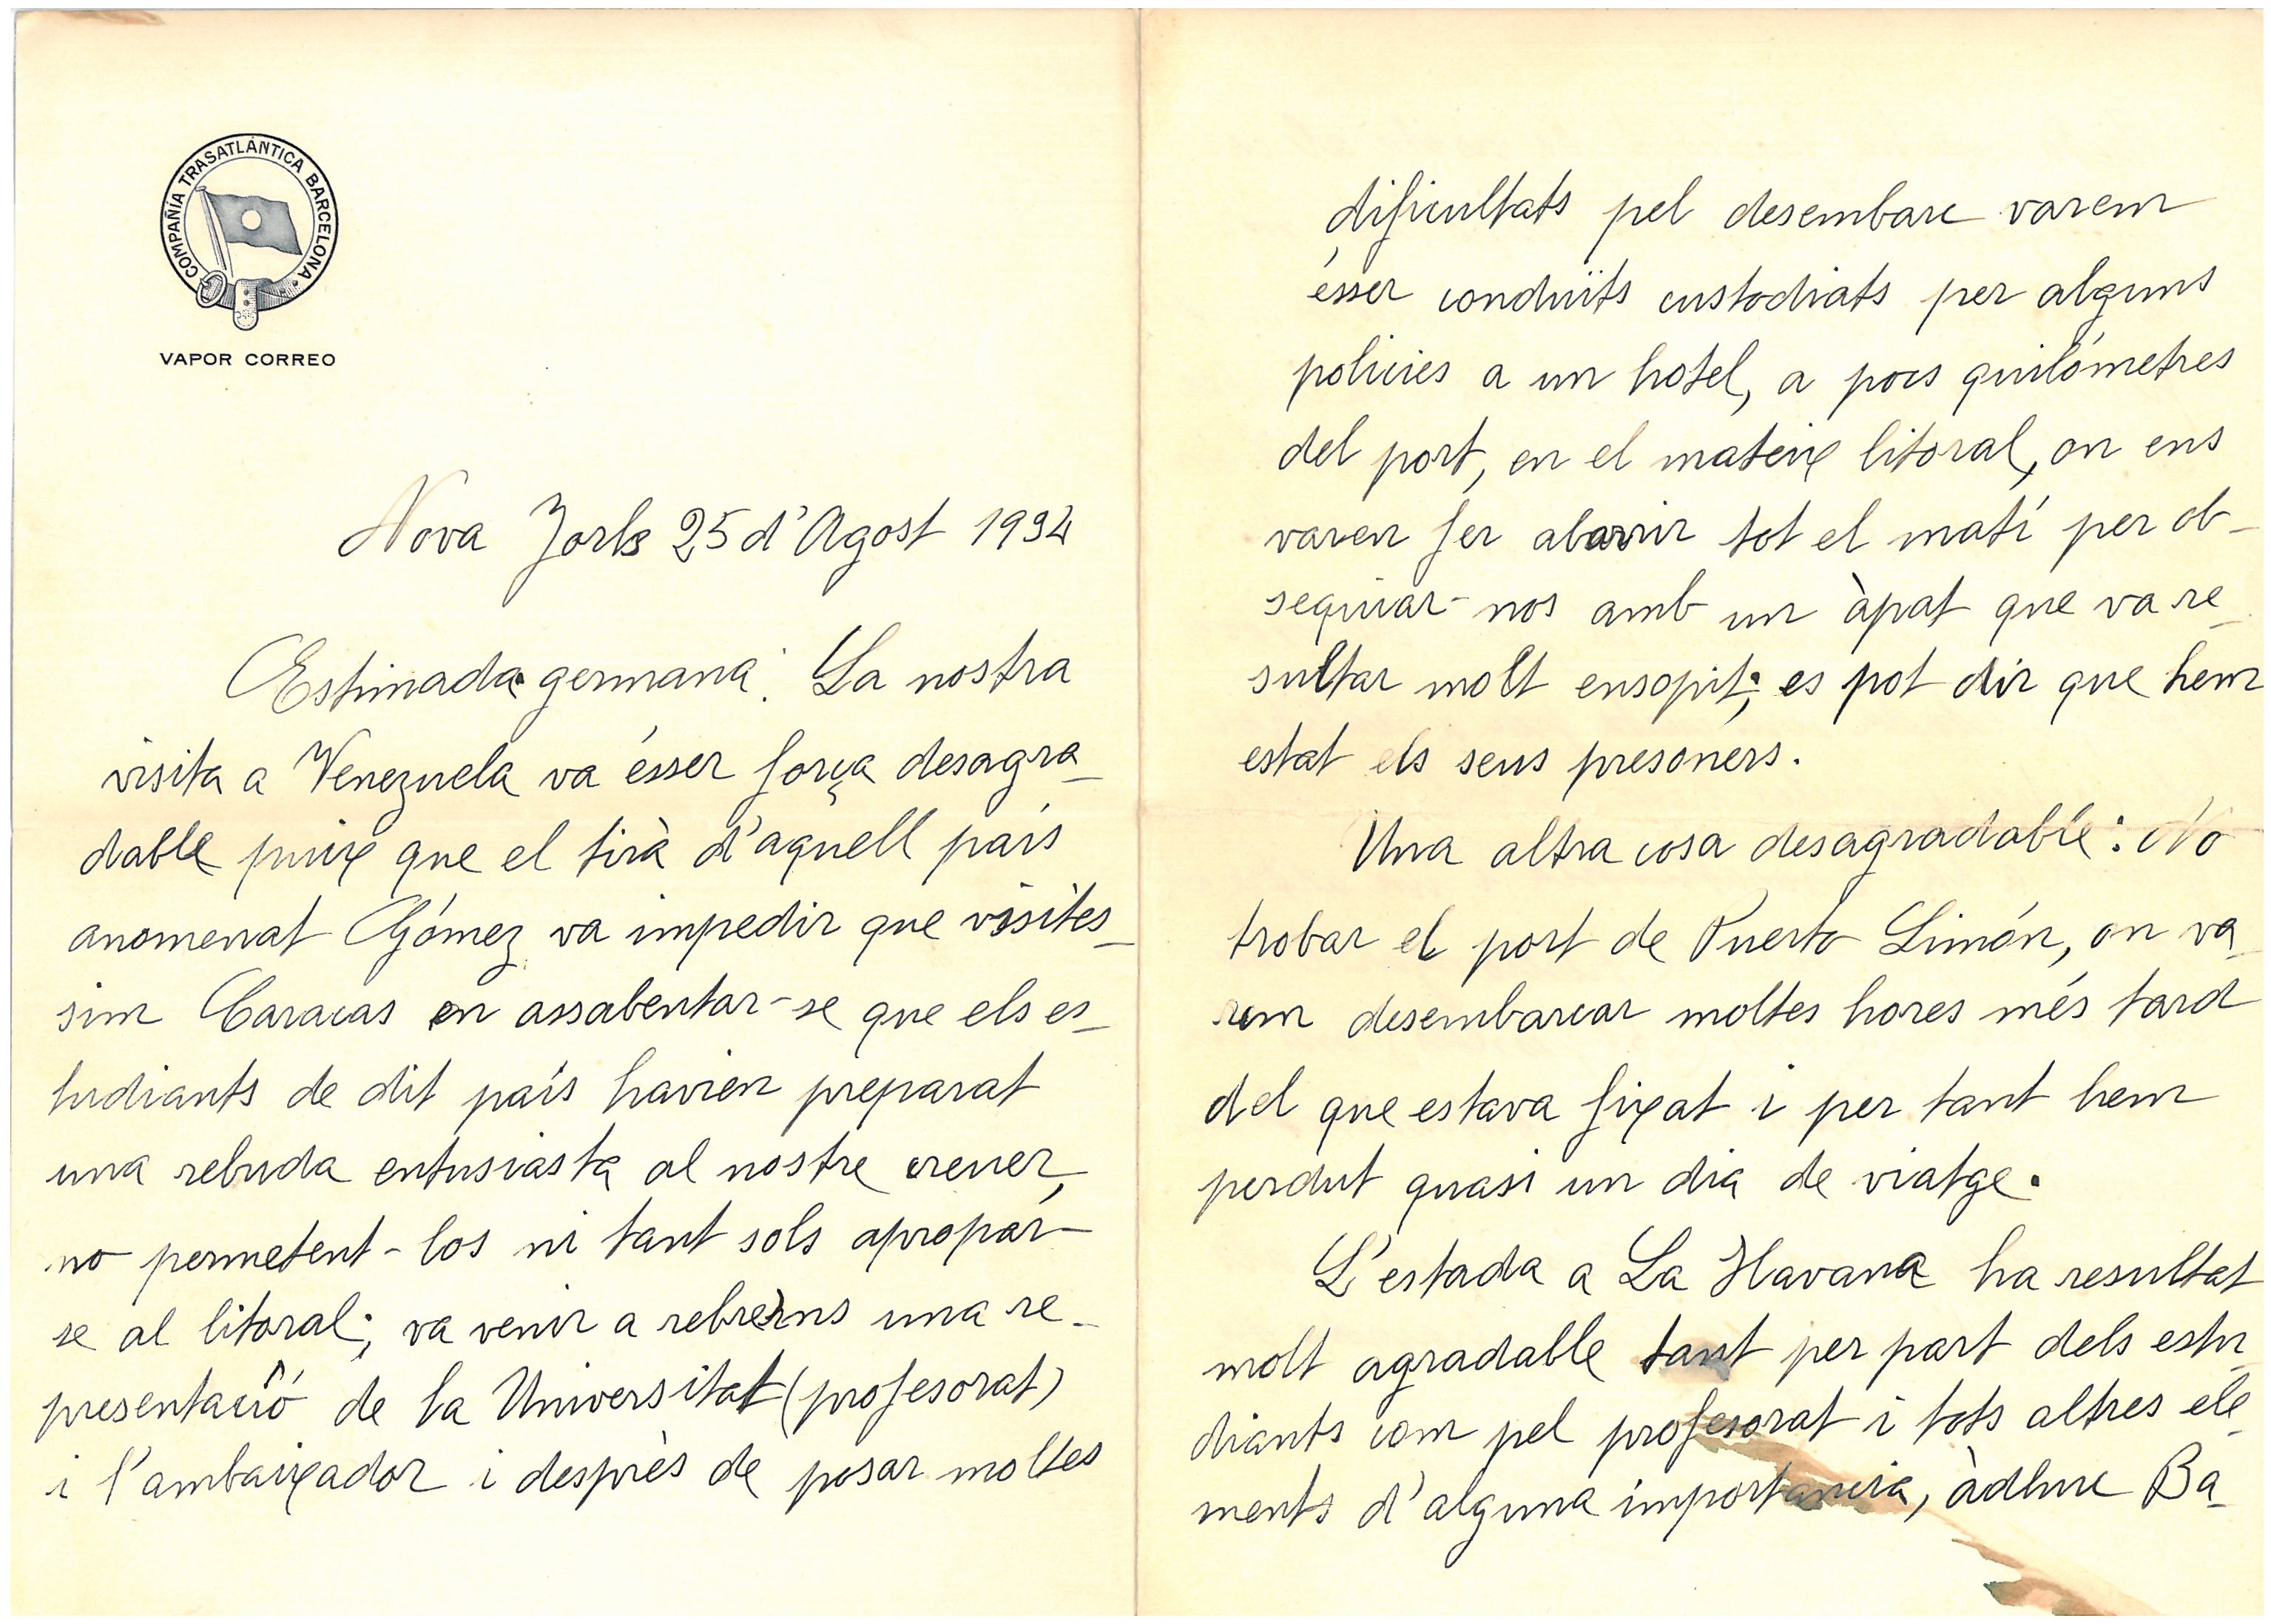 COMPAÑÍA TRASATLÁNTICA BARCELONA
VAPOR CORREO
Nova York 25 d'Agost 1934
Estimada germana: La nostra
visita a Venezuela va ésser força desagra-
dable puix que el tirà d'aquell país
anomenat Gómez va impedir que visités-
sim Caracas en assabentar-se que els es-
tudiants de dit país havien preparat
una rebuda entusiasta al nostre creuer,
no permetent-los ni tant sols apropar-
se al litoral; va venir a rebre'ns una re-
presentació de la Universitat (profesorat)
i l'ambaixador i desprès de posar moltes
dificultats pel desembarc varem
ésser conduïts custodiats per alguns
policies a un hotel, a pocs quilómetres
del port, en el mateix litoral, on ens
varen fer avorrir tot el matí per ob-
sequiar-nos amb un àpat que va re-
sultar molt ensopit; es pot dir que hem
estat els seus presoners.
Una altra cosa desagradable: No
trobar el port de Puerto Limón, on va-
rem desembarcar moltes hores més tard
del que estava fixat i per tant hem
perdut quasi un dia de viatge.
L'estada a La Havana ha resultat
molt agradable tant per part dels estu-
diants com pel profesorat i tots altres ele-
ments d'alguna importancia, àdhuc Ba-